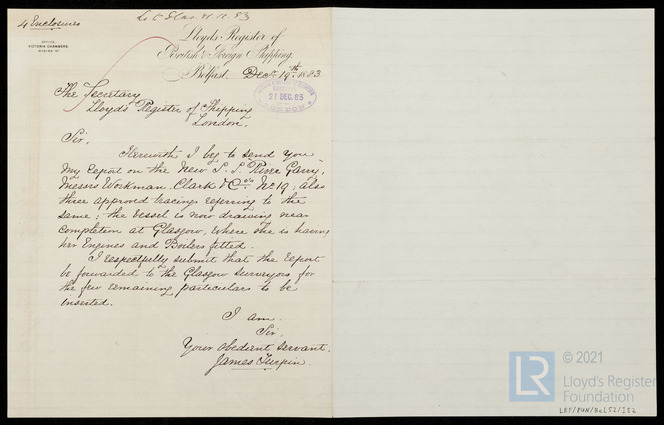 4 Enclosures
Lloyd's Register of
British & Foreign Shipping.
OFFICE,
VICTORIA CHAMBERS,
Belfast. Dec 19th 1883
21 DEC. 83
LONDON
The Secretary
Lloyds Register of Shipping
London.
Sir,
Herewith I beg to send you
my report on the New S.S. "River Garry,"
Messrs Workman Clark & Cos No 19; also
three approved tracings referring to the
same; the vessel is now drawing near
completion at Glasgow, where she is having
her Engines and Boilers fitted.
I respectfully submit that the report
be forwarded to the Glasgow Surveyors for
the few remaining particulars to be
inserted.
I am
Sir,
Your obedient servant.
James Turpin.
LR © 2021
Lloyd's Register
Foundation